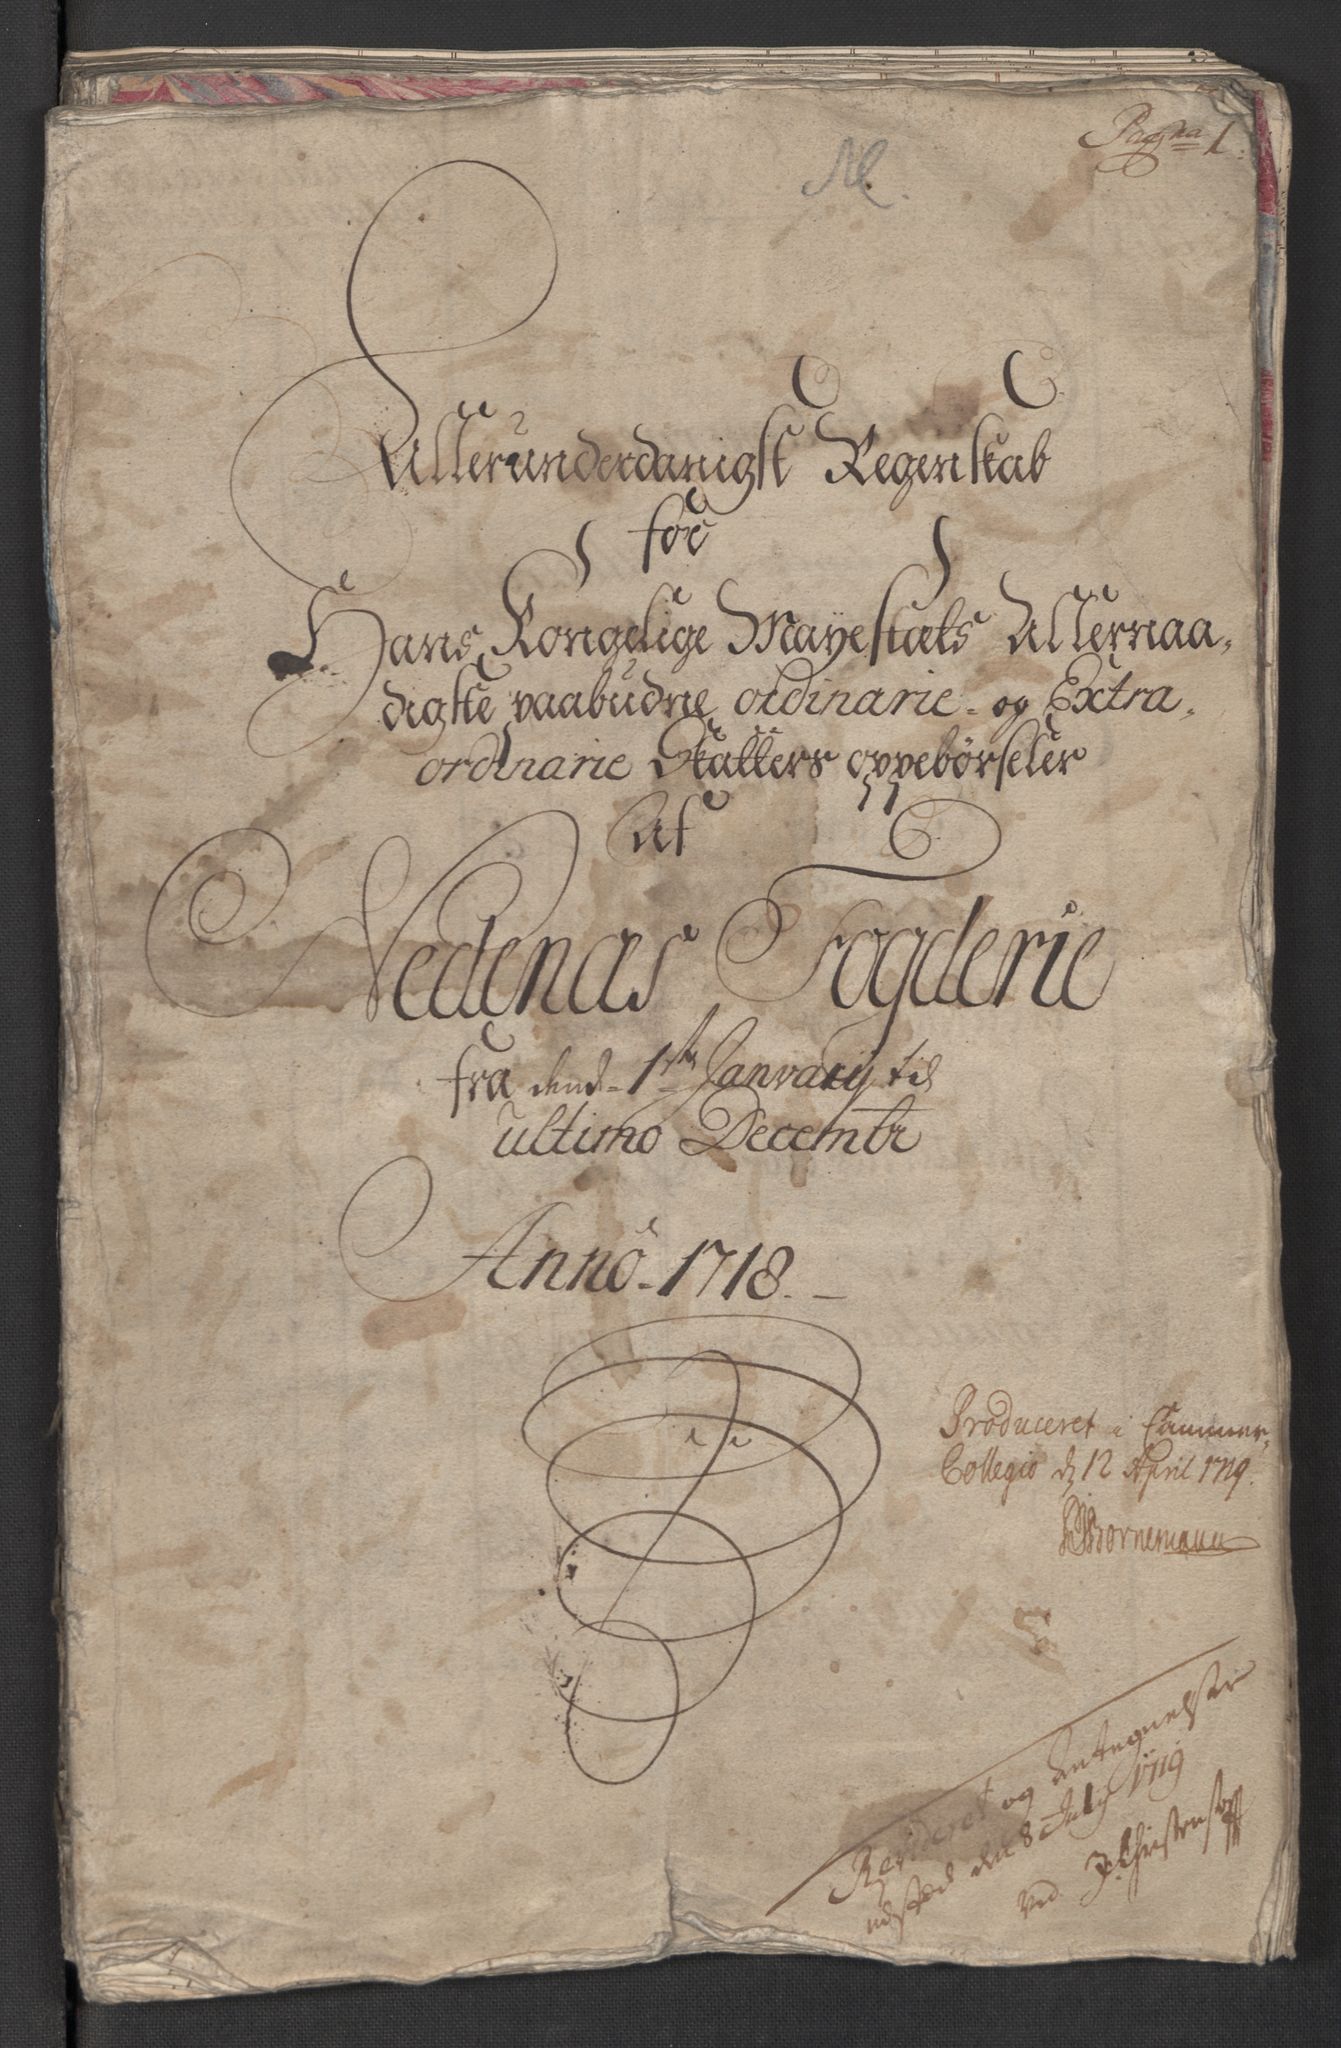 Pagina 1.
Allerunderdanigst Regenskab
for
Hans Kongelige Mayestæts Allernaa-
digste paabudne ordinarie- og Extra-
ordinarie Skatters oppebörseler
Af
Nedenæs Fogderie
fra dend 1te January til
ultimo Decembr
Anno 1718.
Produceret i Cammer-
Collegio d. 12 April 1719.
Bornemann
Revideret og Antegnelser
udsted den 8 July 1719
ved J. Christensen